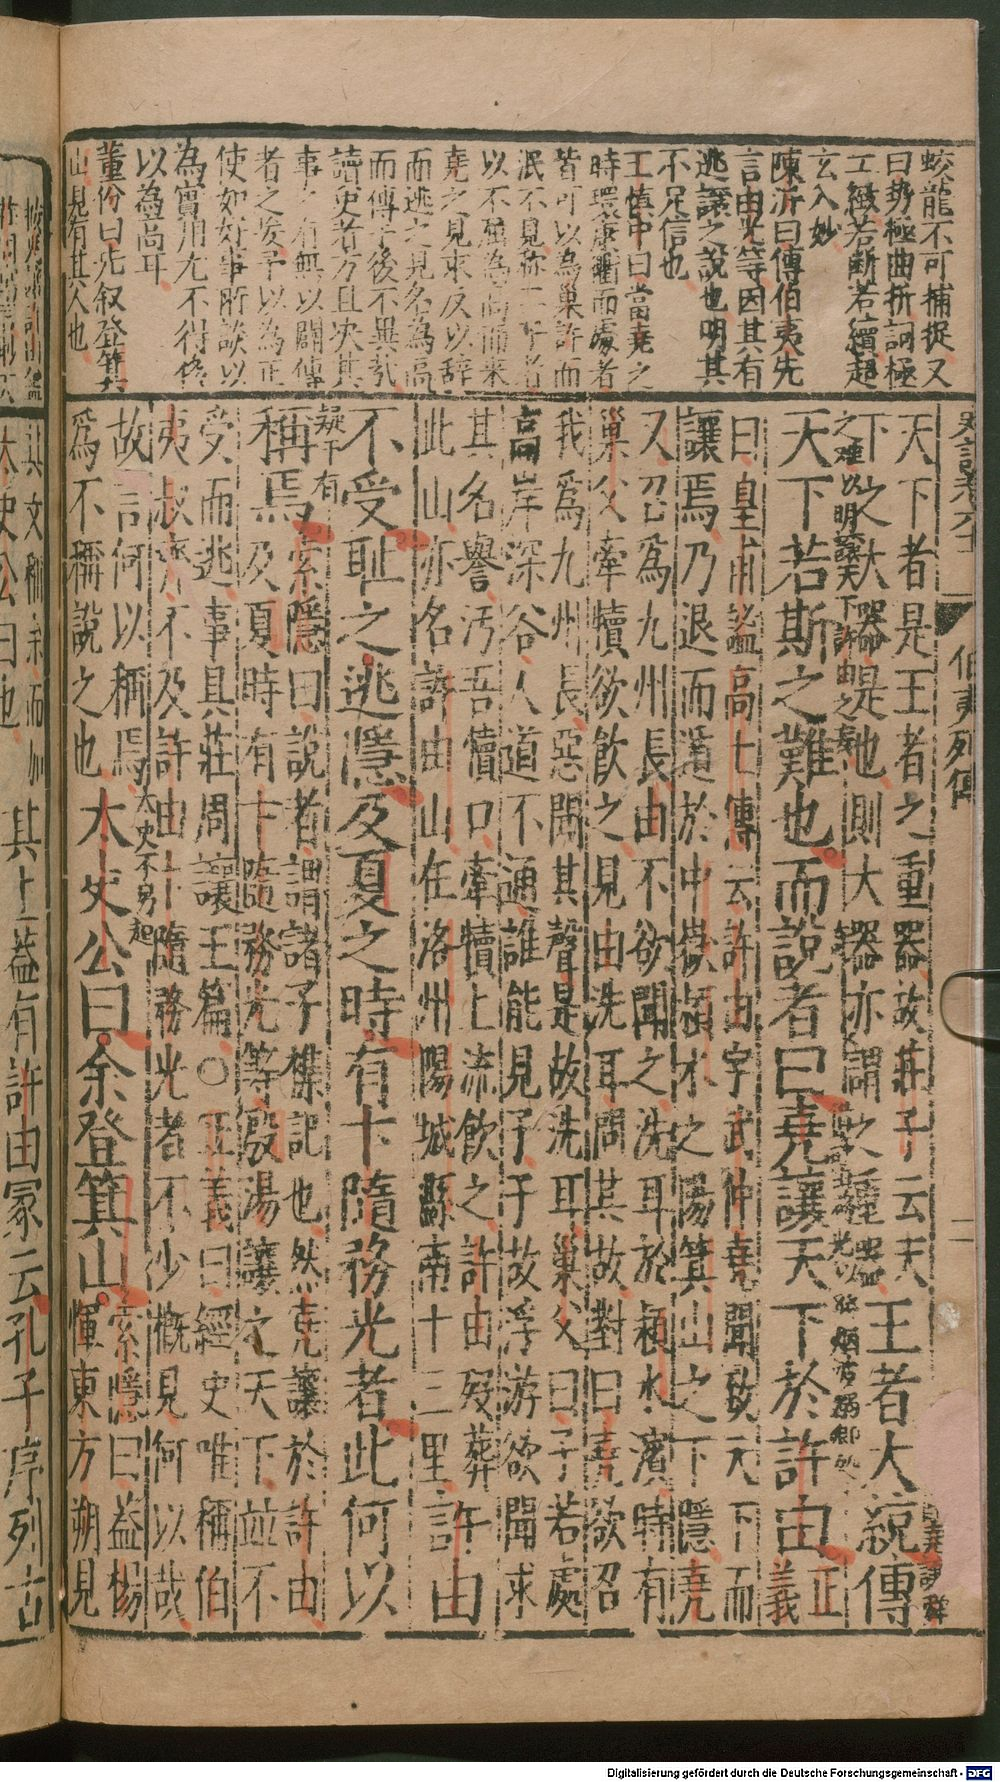 蛟龍不可捕捉又
曰勢極曲折詞極
工緻若斷若續超
玄入妙
陳沂曰傳伯夷先
言由光等因其有
逃讓之說也明其
不足信也
王慎中曰當堯之
時環康衢而處者
皆可以為巢許而
泯不見称二子者
以不屈為高而來
堯之見求反以辞
而逃之見名為高
而傳于後不異哉
讀史者方且決其
事之有無以闢傳
者之
使如好事所談以
為實用尤不得
以為尚耳
董份曰先叙登箕
山見有其人也
史記卷六十一
伯夷列傳
二
天下者是王者之重器故莊子云天王者大統傳
下之大器是也則大器亦謂之重器
天下若斯之難也而說者曰堯讓天下於許由正
義
曰皇甫謐高士傳云許由字武仲堯聞致天下而
讓焉乃退而遁於中嶽潁水之陽箕山之下隱堯
又召為九州長由不欲聞之洗耳於潁水濱時有
巢父牽犢欲飲之見由洗耳問其故對曰堯欲召
我為九州長惡聞其聲是故洗耳巢父曰子若處
高岸深谷人道不通誰能見子子故浮游欲聞求
其名譽汚吾犢口牽犢上流飲之許由歿葬
此山亦名許由山在洛州陽城縣南十三里許由
不受恥之逃隱及夏之時有卞隨務光者此何以
疑下有
稱焉索隱曰說者謂諸子雜記也然堯讓於許由
及夏時有卞隨務光等殷湯讓之天下並不
受而逃事具莊周讓王篇○正義曰經史唯稱伯
夷叔齊不及許由卞隨務光者不少概見何以哉
故言何以稱焉
太史不易起
為不稱說之也太史公曰余登箕山索隱曰蓋楊
惲東方朔見
其文稱余而加
太史公曰也
其上蓋有許由冢云孔子序列古
Digitalisierung gefördert durch die Deutsche Forschungsgemeinschaft - DFG